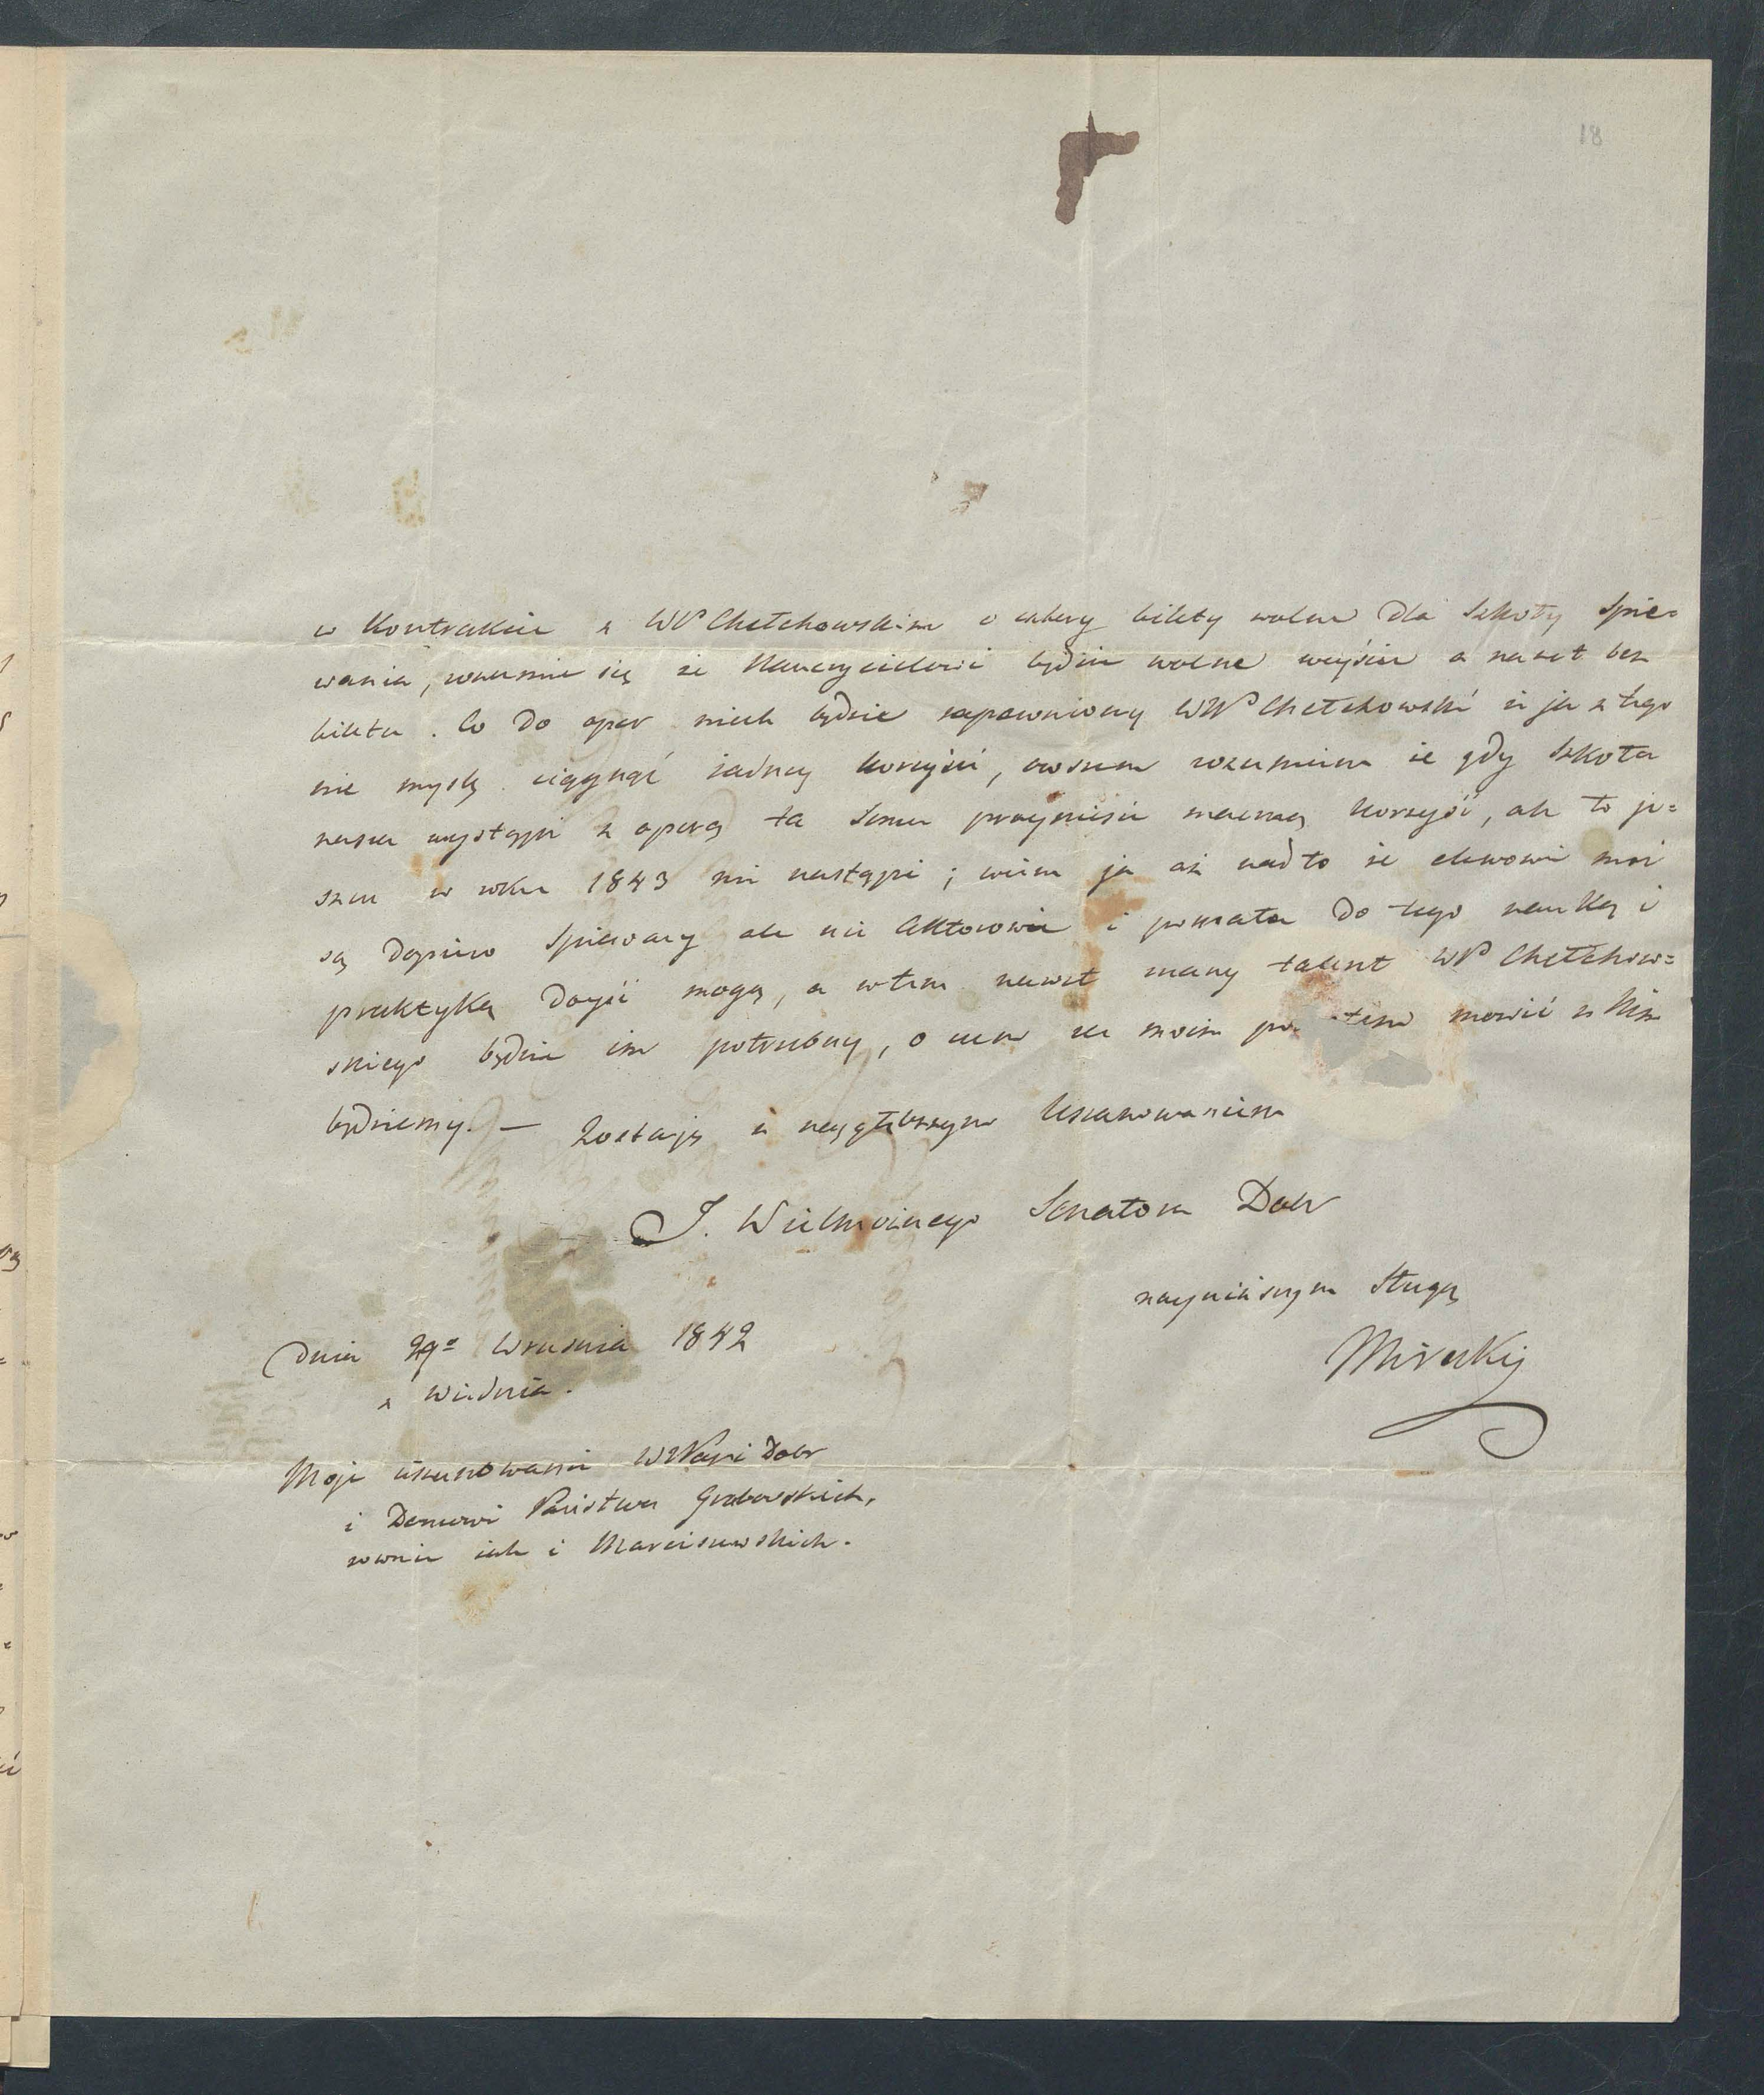 18
w Kontrakcie z WP Chełchowskim o cztery bilety wolne dla Szkoły Spie=
wania, rozumie się że Nauczycielowi będzie wolne weyście a nawet bez
biletu. Co do oper niech będzie zapewniony WWP Chełchowski że ja z tego
nie myslę ciągnąć żadney korzyści, owszem rozumiem że gdy Szkoła
nasza wystąpi z operą ta Scenie przyniesie znaczną korzyść, ale to je=
szcze w roku 1843 nie nastąpi; wiem ja aż nadto że elewowie moi
są dopiero Spiewacy ale nie Aktorowie i pomału do tego nauką i
praktyką doyść mogą, a wtem nawet znany talent WP Chełchow=
skiego będzie im potrzebny, o czem za moim mowić z Nim
będziemy. — Zostaję z naygłębszym Uszanowaniem
J. Wielmożnego Senatora Dobr
nayniższym Sługą
Mireckij
Dnia 29º Wrzesnia 1842
z Wiednia.
Moje uszanowanie WWPani Dobr
i Domowi Państwa Grabowskich,
rownie jak i Marciszewskich.